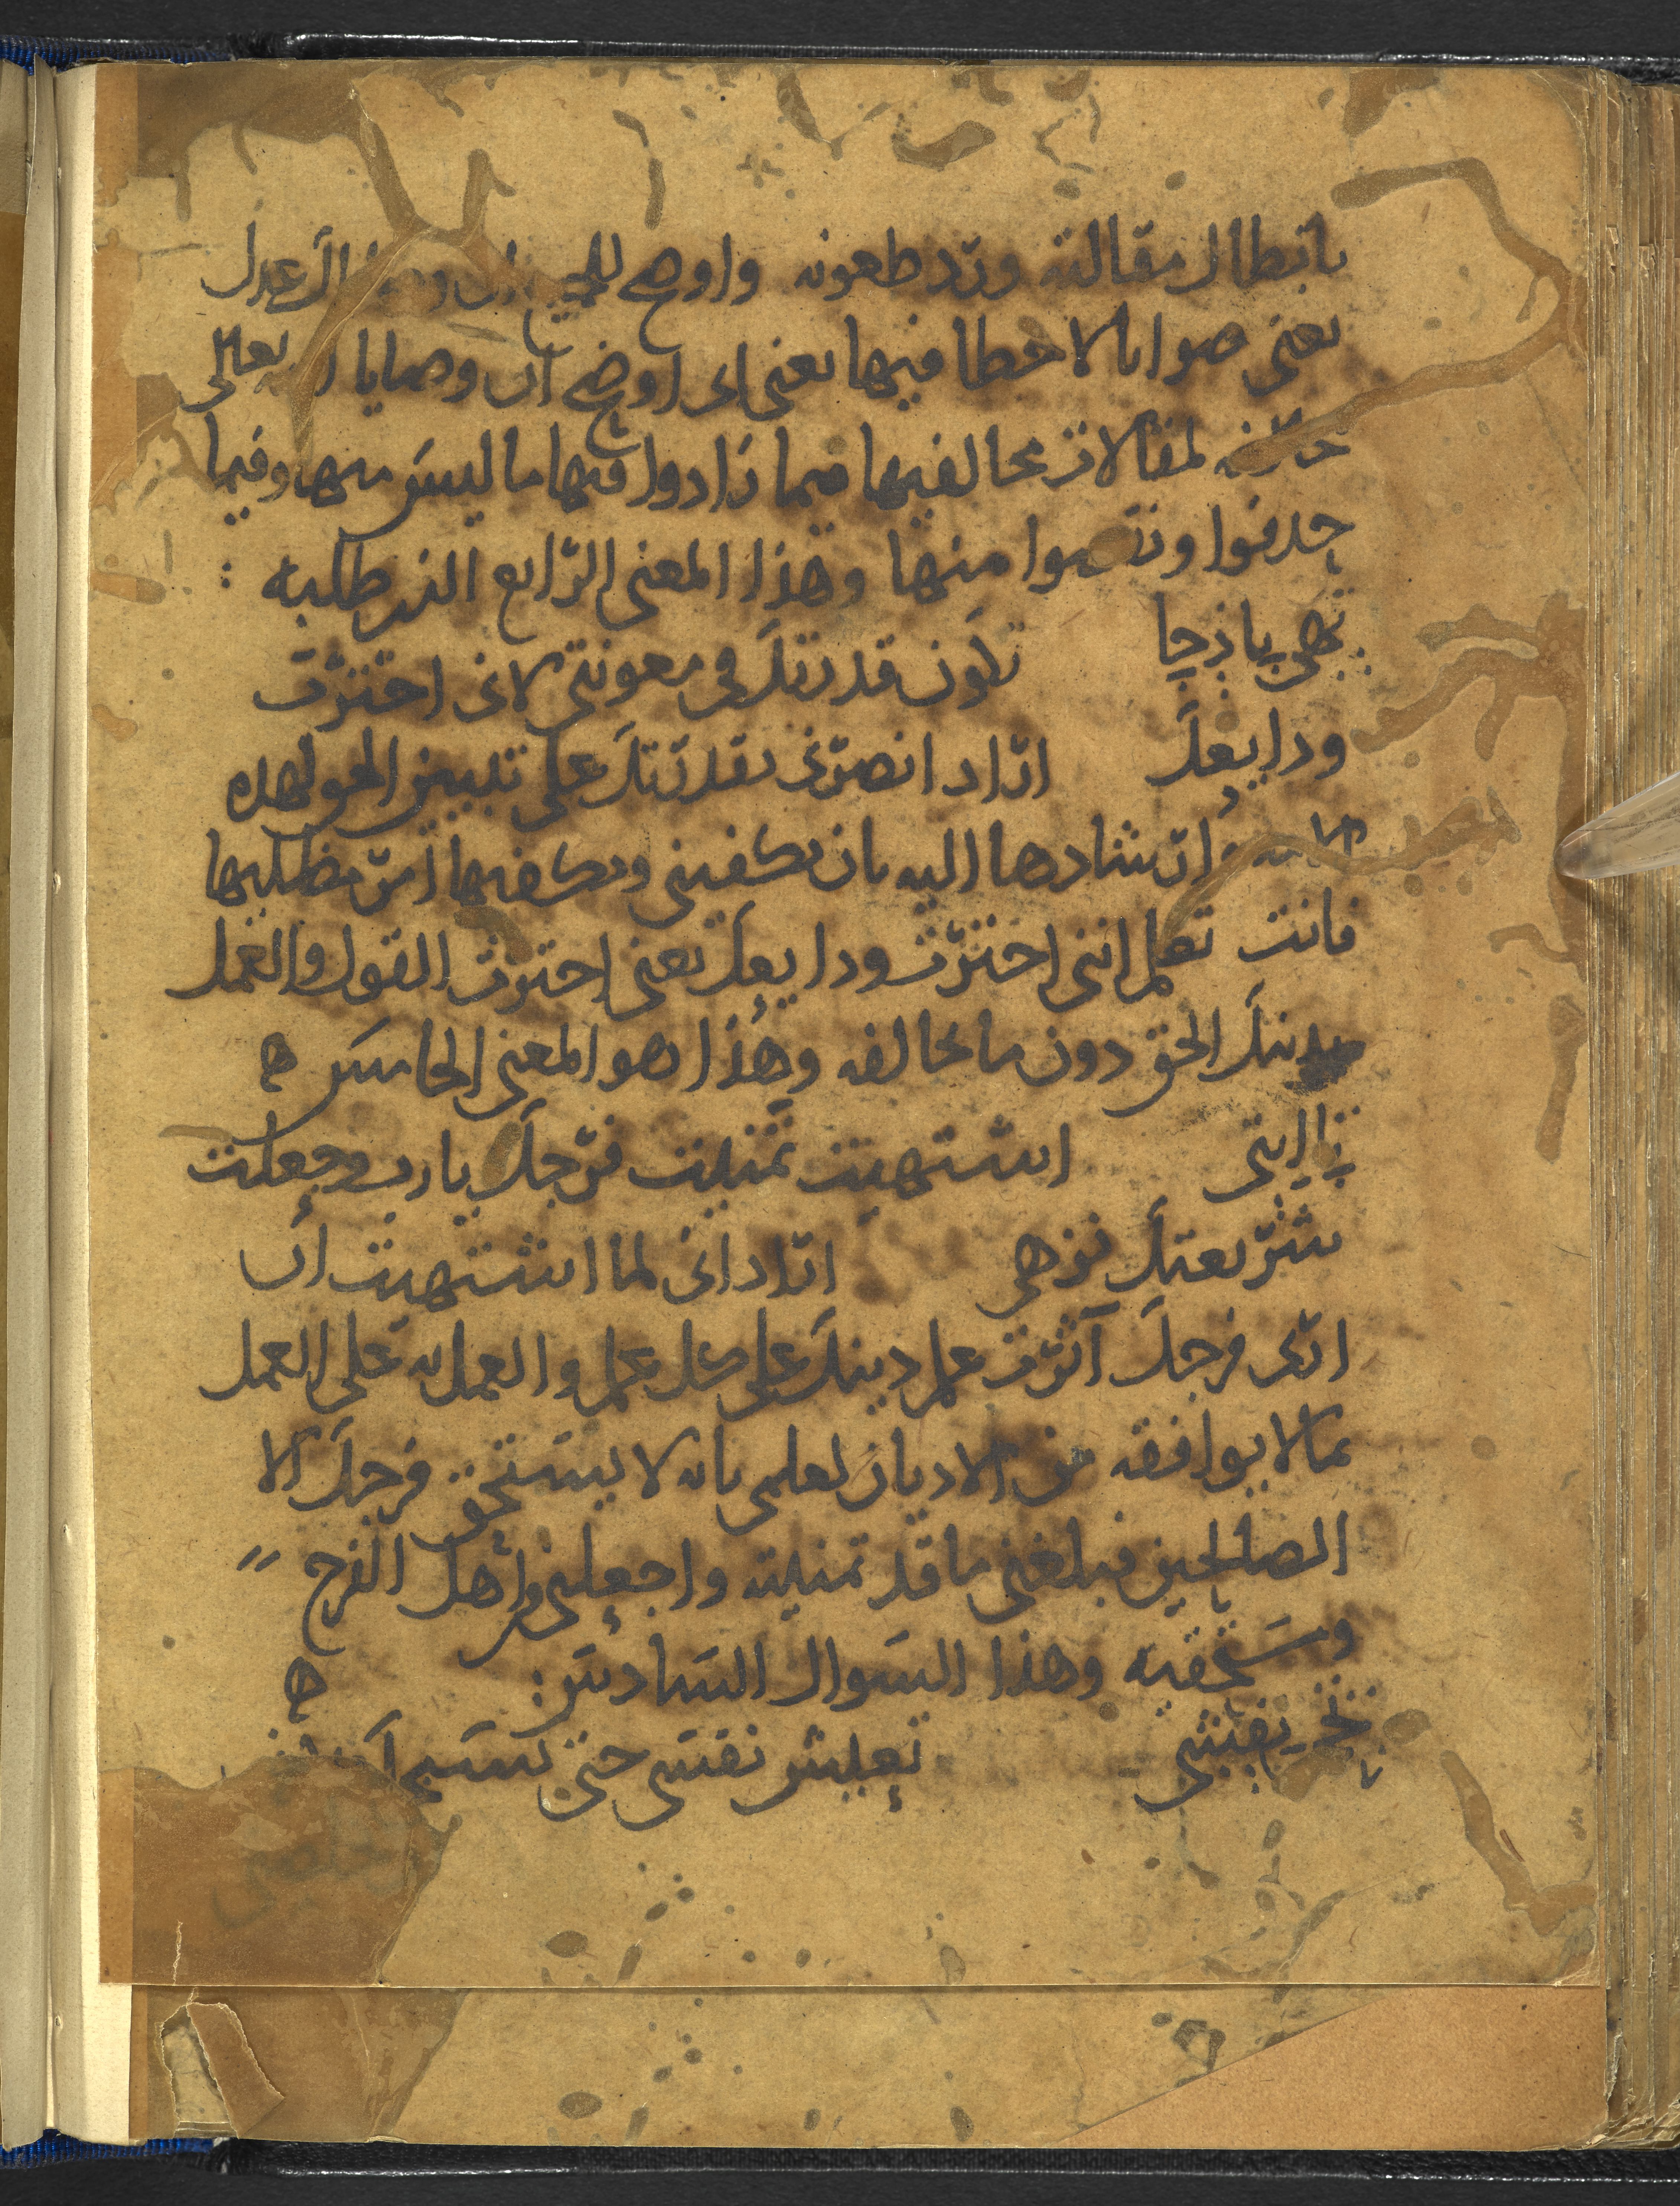 بابطال مقالته ورد طعونه واوضح للجميع ان وصاياك عدل
يعني صوابا لا خطا فيها يعني اي اوضح ان وصايا تعالى
لمقالات مخالفيها فيما زادوا فيها ما ليس منها وفيما
حدفوا ونقصوا منها وهذا المعنى الرابع الذي طلبه :
تهي ياذخا تكون قدرتك في معونتي لاني اخترت
ودايعك اراد انصرني بقدرتك على تبيين الحق لهذه
الامة وارشادها اليه بان تكفيني وتكفيها امر مضليها
فانت تعلم انني اخترت ودايعك يعني اخترت القول والعمل
بدينك الحق دون ما يخالفه وهذا هو المعنى الخامس ه
تاابتي اشتهيت تمنيت فرجك يا رب وجعلت
شريعتك نزهي اراد اني لما اشتهيت ان
ارى فرجك آثرت علم دينك على كل علم والعمل به على العمل
بما لا يوافقه من الاديان لعلمي بانه لا يستحق فرجك الا
الصالحين فبلغني ما قد تمنيته واجعلني من اهل الفرج
ومستحقيه وهذا السوال السادس : ه
تحي نفشي تعيش نفسي حتى تسبح